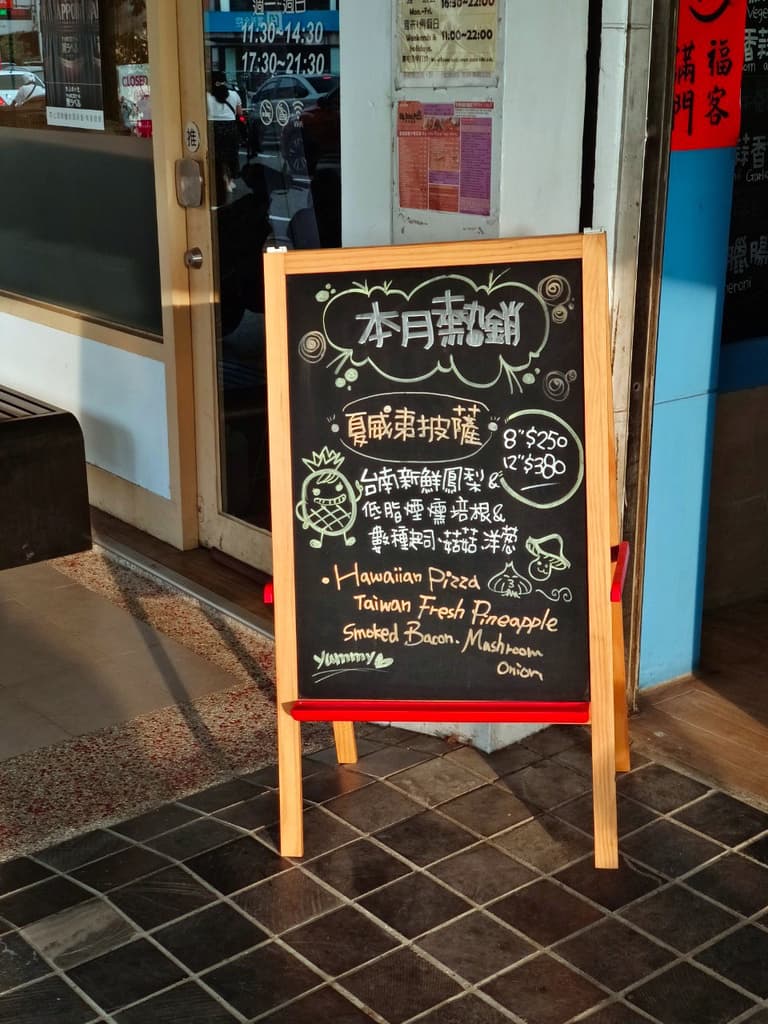 週一~週日
11:30~14:30
17:30~21:30
Mon.-Fri.
16:30~22:00
Weekends &
Holidays.
11:00~22:00
CLOSED
推
福客
滿門
本月熱銷
夏威夷披薩
8"$250
12"$380
台南新鮮鳳梨&
低脂煙燻培根&
數種起司、菇菇、洋蔥
•Hawaiian Pizza
Taiwan Fresh Pineapple
Smoked Bacon. Mashroom
Onion
Yummy